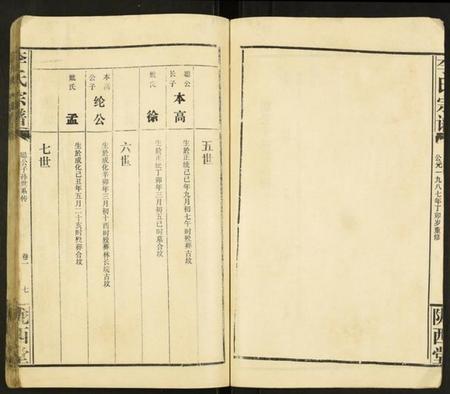 李氏宗谱
公元一九八七年丁卯岁重修
陇西堂
五世
聪公长子
本高
生於正统己巳年九月初七午时殁葬古坟
戴氏
徐
生於正统丁卯年三月初五巳时墓合坟
六世
本高公子
纶公
生於成化辛卯年三月初十酉时殁葬林长垅古坟
戴氏
孟
生於成化己丑年五月二十亥时殁葬合坟
七世
李氏宗谱
聪公子孙世系传
卷一
七
陇西堂